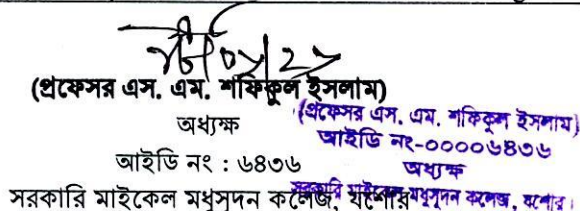 (প্রফেসর এস. এম. শফিকুল ইসলাম)
অধ্যক্ষ
আইডি নং : ৬৪৩৬
সরকারি মাইকেল মধুসূদন কলেজ, যশোর
(প্রফেসর এস. এম. শফিকুল ইসলাম)
আইডি নং-০০০০৬৪৩৬
অধ্যক্ষ
সরকারি মাইকেল মধুসূদন কলেজ, যশোর।